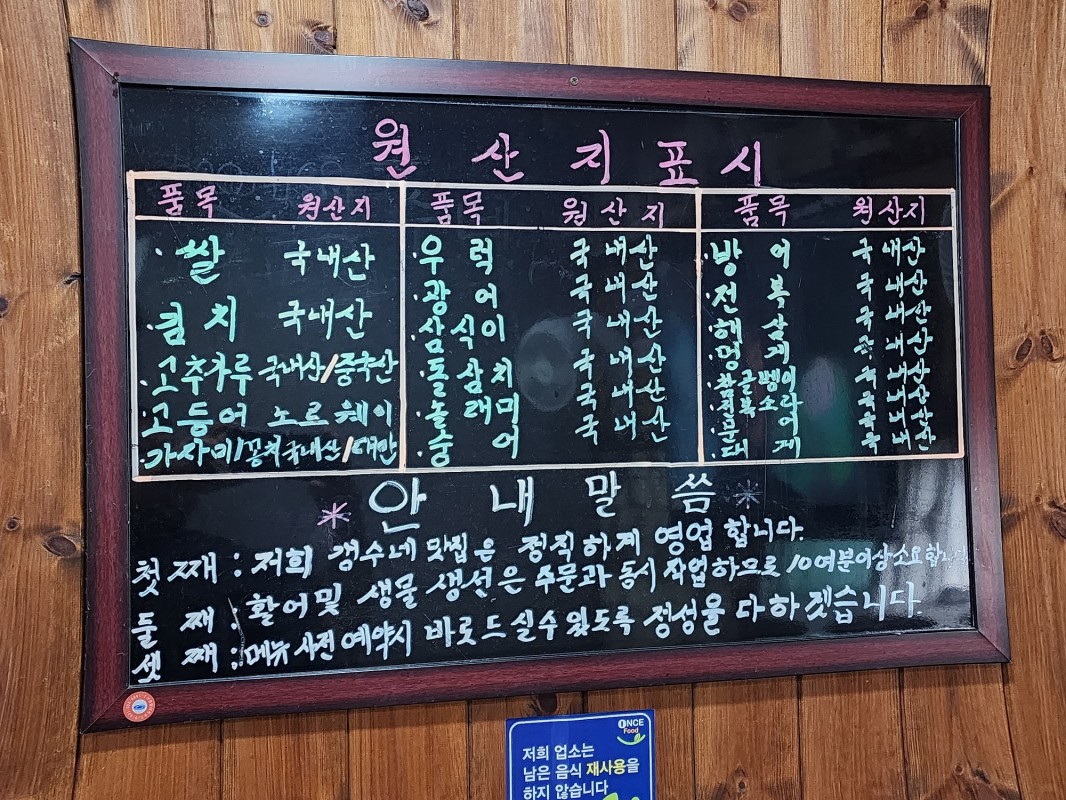 원산지표시
품목 원산지 품목 원산지 품목 원산지
·쌀 국내산
·김치 국내산
·고추가루 국내산/중국산
·고등어 노르웨이
·가자미/꽁치 국내산/대만
·우럭 국내산
·광어 국내산
·삼식이 국내산
·돌삼치 국내산
·놀래미 국내산
·숭어 국내산
·방어 국내산
·전복 국내산
·해삼 국내산
·멍게 국내산
·참골벵이 국내산
·전복소라 국내산
·문어 국내산
·대게 국내산
*안내말씀*
첫째 : 저희 갱수네 맛집은 정직하게 영업합니다.
둘째 : 활어및 생물 생선은 주문과 동시 작업하므로 10여분이상소요합니다
셋째 : 메뉴 사전예약시 바로드실수 있도록 정성을 다하겠습니다.
ONCE
Food
저희 업소는
남은 음식 재사용을
하지 않습니다